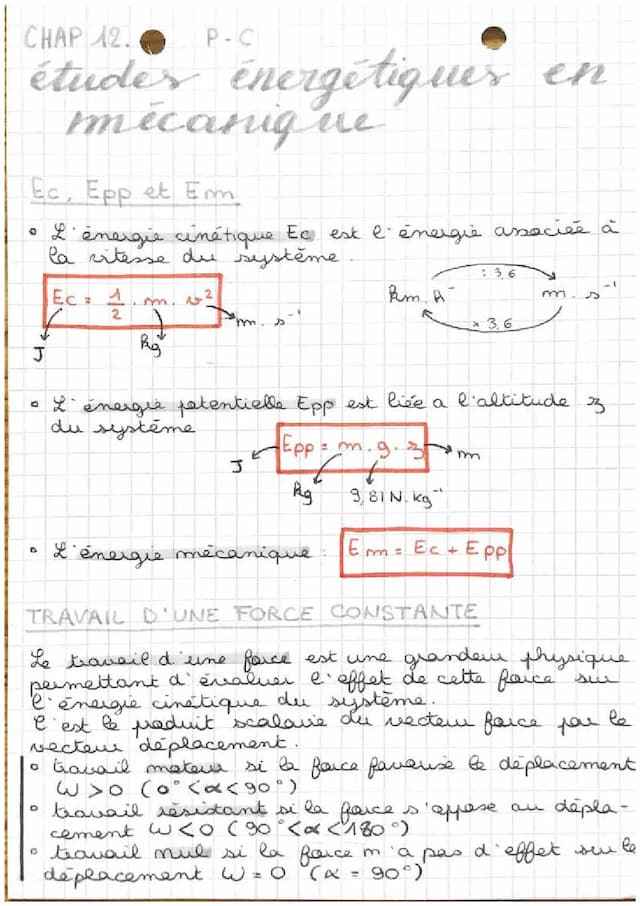 CHAP 12. P-C
études énergétiques en
mécanique
Ec, Epp et Em
• L'énergie cinétique Ec est l'énergie associée à
la vitesse du système.
Ec = 1/2 . m . v²
J
kg
m. s⁻¹
: 3,6
Km. h⁻
m. s⁻¹
x 3,6
• L'énergie potentielle Epp est liée a l'altitude z
du système
Epp = m . g . z
J
kg
9,81 N. kg⁻¹
m
• L'énergie mécanique : Em = Ec + Epp
TRAVAIL D'UNE FORCE CONSTANTE
Le travail d'une force est une grandeur physique
permettant d'évaluer l'effet de cette force sur
l'énergie cinétique du système.
C'est le produit scalaire du vecteur force par le
vecteur déplacement.
• travail moteur si la force favorise le déplacement
W > 0 (0° < α < 90°)
• travail résistant si la force s'oppose au dépla-
cement W < 0 (90° < α < 180°)
• travail nul si la force n'a pas d'effet sur le
déplacement W = 0 (α = 90°)